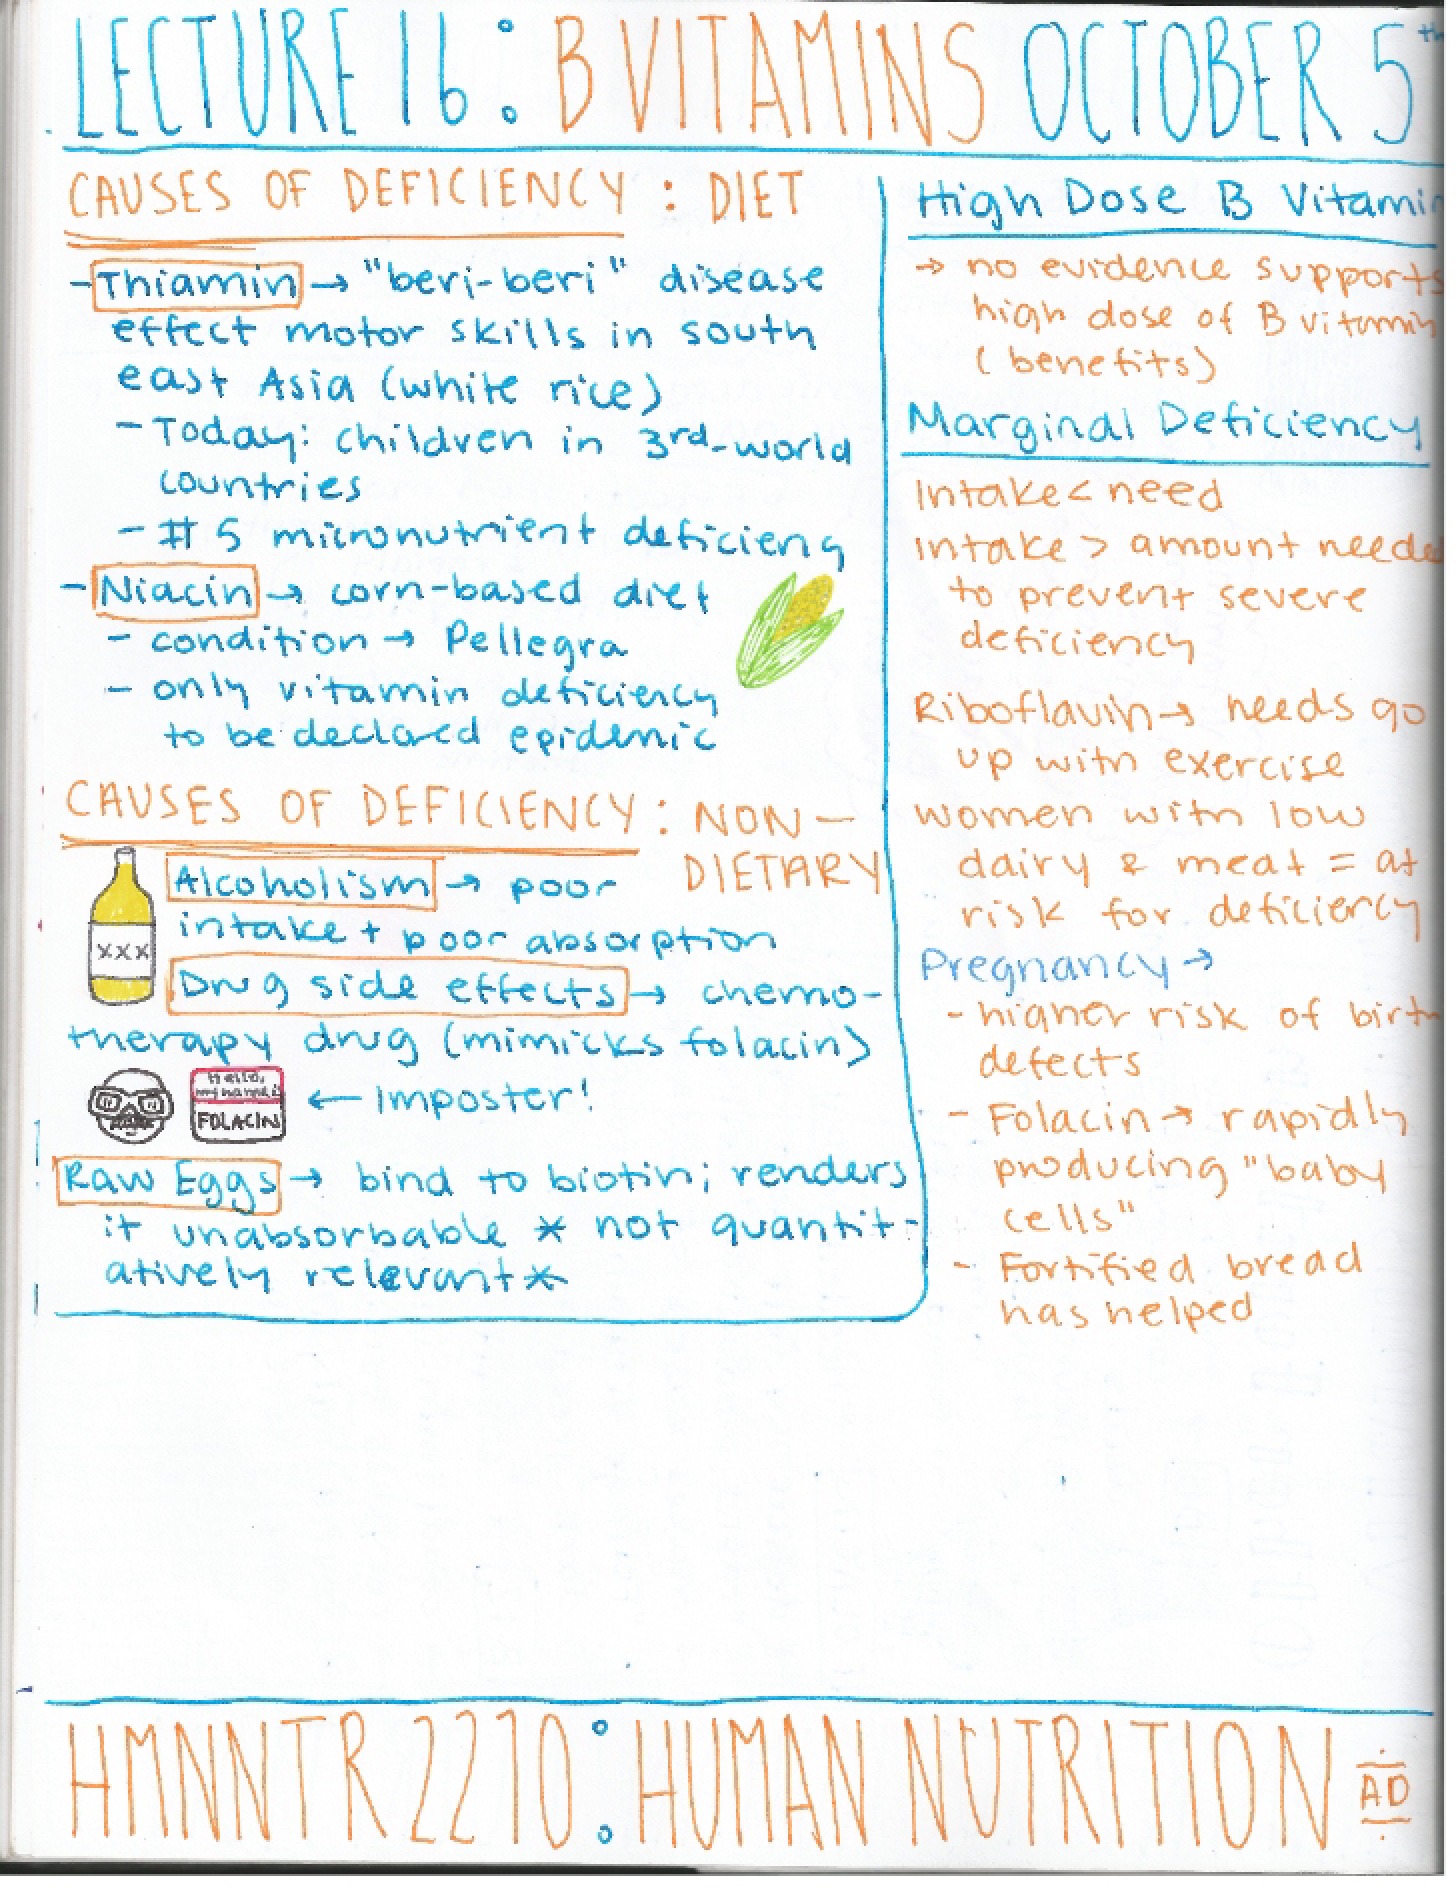 LECTURE 16: B VITAMINS OCTOBER 5th
CAUSES OF DEFICIENCY: DIET
- Thiamin → "beri-beri" disease
effect motor skills in south
east Asia (white rice)
- Today: children in 3rd-world
countries
- # 5 micronutrient deficieny
- Niacin → corn-based diet
- condition → Pellegra
- only vitamin deficiency
to be declared epidemic
CAUSES OF DEFICIENCY: NON-
DIETARY
Alcoholism → poor
intake + poor absorption
XXX
Drug side effects → chemo-
therapy drug (mimicks folacin)
Hello,
my name is
FOLACIN
← Imposter!
Raw Eggs → bind to biotin; renders
it unabsorbable * not quantit-
atively relevant *
High Dose B Vitamin
→ no evidence supports
high dose of B vitamin
(benefits)
Marginal Deficiency
Intake < need
Intake > amount neede
to prevent severe
deficiency
Riboflavin → needs go
up with exercise
women with low
dairy & meat = at
risk for deficiency
Pregnancy →
- higher risk of birth
defects
- Folacin → rapidly
producing "baby
cells"
- Fortified bread
has helped
HMNNTR 2210: HUMAN NUTRITION
AD